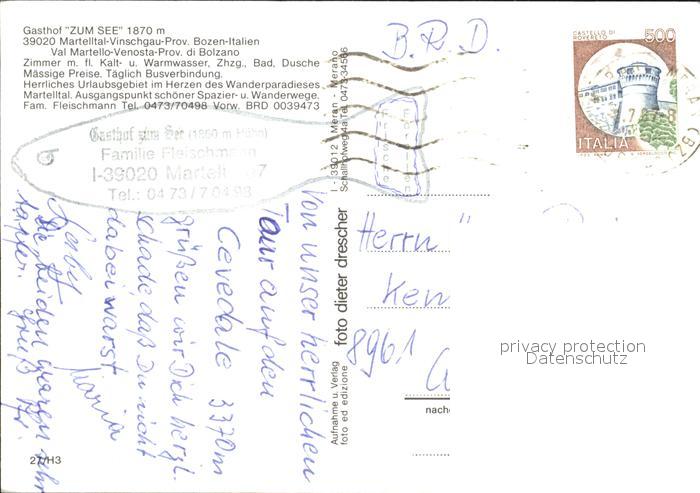 Gasthof "ZUM SEE" 1870 m
39020 Martelltal-Vinschgau-Prov. Bozen-Italien
Val Martello-Venosta-Prov. di Bolzano
Zimmer m. fl. Kalt- u. Warmwasser, Zhzg., Bad, Dusche
Mässige Preise. Täglich Busverbindung.
Herrliches Urlaubsgebiet im Herzen des Wanderparadieses
Martelltal. Ausgangspunkt schöner Spazier- u. Wanderwege.
Fam. Fleischmann Tel. 0473/70498 Vorw. BRD 0039473
Gasthof zum See (1860 m Höhe)
Familie Fleischmann
I-39020 Martell
Tel.: 04 73 / 7 04 98
Von unser herrlichen
Tour auf den
Cevedale 3370m
grüßen wir Dich herzl.
schade, daß Du nicht
dabei warst
Maria
Die beiden waren sehr
tapfer. Gruß
27/H3
I - 39012 - Meran - Merano
Schallhofweg 4a Tel. 0473-34566
foto dieter drescher
Aufnahme u. Verlag
foto ed edizione
B.R.D.
CASTELLO DI
ROVERETO
500
ITALIA
Herrn
Kem
8961
nache
privacy protection
Datenschutz